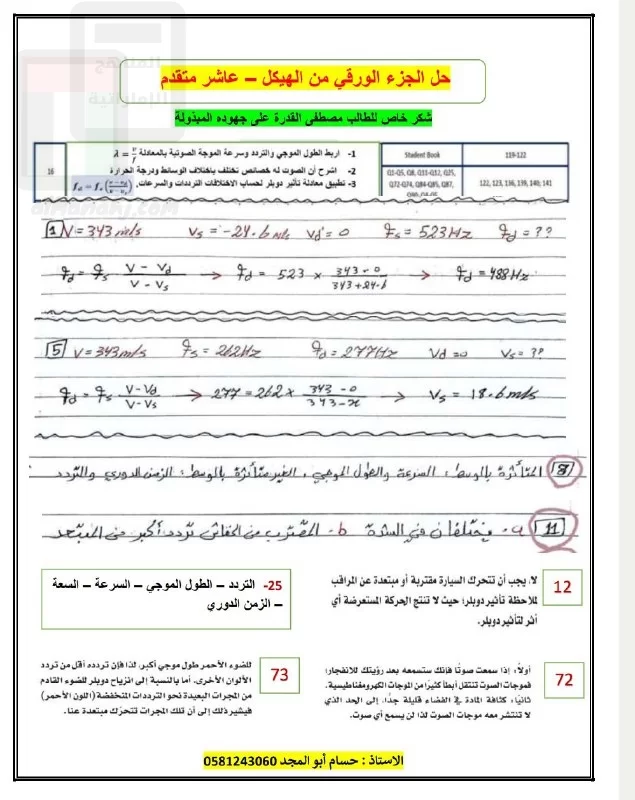 المناهج
الإماراتية
almanahj.com
حل الجزء الورقي من الهيكل – عاشر متقدم
شكر خاص للطالب مصطفى القدرة على جهوده المبذولة
16
1- اربط الطول الموجي والتردد وسرعة الموجة الصوتية بالمعادلة λ = v/f
2- اشرح أن الصوت له خصائص تختلف باختلاف الوسائط ودرجة الحرارة
3- تطبيق معادلة تأثير دوبلر لحساب الاختلافات الترددات والسرعات.
Student Book 119-122
Q1-Q5, Q8, Q11-Q12, Q25,
Q72-Q74, Q84-Q85, Q87,
122, 123, 136, 139, 140, 141
1 V = 343 m/s Vs = -24.6 m/s Vd = 0 fs = 523 Hz fd = ??
fd = fs (V - Vd)/(V - Vs) → fd = 523 × (343 - 0)/(343 + 24.6) → fd = 488 Hz
5 V = 343 m/s fs = 262 Hz fd = 277 Hz Vd = 0 Vs = ??
fd = fs (V - Vd)/(V - Vs) → 277 = 262 × (343 - 0)/(343 - x) → Vs = 18.6 m/s
8 المتأثرة بالوسط: السرعة والطول الموجي، الغير متأثرة بالوسط: الزمن الدوري والتردد
11 a- يختلفان في الشدة b- المقترب من الخفاش تردد أكبر من المبتعد
12 لا، يجب أن تتحرك السيارة مقتربة أو مبتعدة عن المراقب
لملاحظة تأثير دوبلر؛ حيث لا تنتج الحركة المستعرضة أي
أثر لتأثير دوبلر.
25- التردد – الطول الموجي – السرعة – السعة
– الزمن الدوري
72 أولاً، إذا سمعت صوتًا فإنك ستسمعه بعد رؤيتك للانفجار؛
فموجات الصوت تنتقل أبطأ كثيرًا من الموجات الكهرومغناطيسية.
ثانيًا، كثافة المادة في الفضاء قليلة جدًا، إلى الحد الذي
لا تنتشر معه موجات الصوت لذا لن يسمع أي صوت.
73 للضوء الأحمر طول موجي أكبر، لذا فإن تردده أقل من تردد
الألوان الأخرى. أما بالنسبة إلى انزياح دوبلر للضوء القادم
من المجرات البعيدة نحو الترددات المنخفضة (اللون الأحمر)
فيشير ذلك إلى أن تلك المجرات تتحرك مبتعدة عنا.
الاستاذ : حسام أبو المجد 0581243060